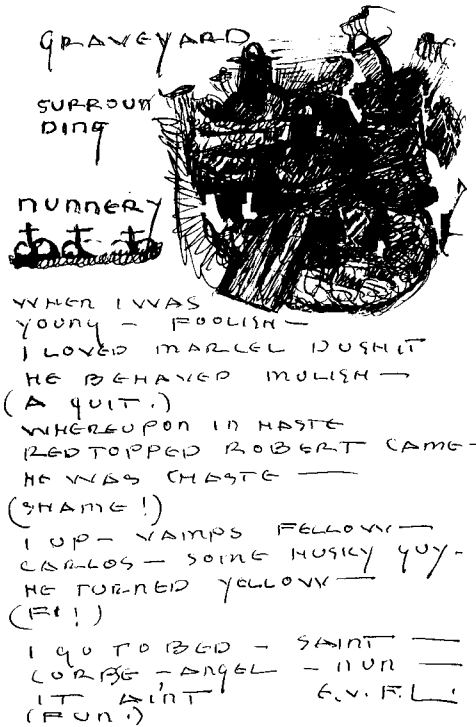 GRAVEYARD
SURROUN
DING
NUNNERY
WHEN I WAS
YOUNG — FOOLISH —
I LOVED MARCEL DUSHIT
HE BEHAVED MULISH —
(A QUIT.)
WHEREUPON IN HASTE
REDTOPPED ROBERT CAME —
HE WAS CHASTE —
(SHAME!)
I UP — VAMPS FELLOW —
CARLOS — SOME HUSKY GUY —
HE TURNED YELLOW —
(FI!)
I GO TO BED — SAINT —
CORPSE — ANGEL — NUN —
IT AIN'T
(FUN.)
E.V.F.L.